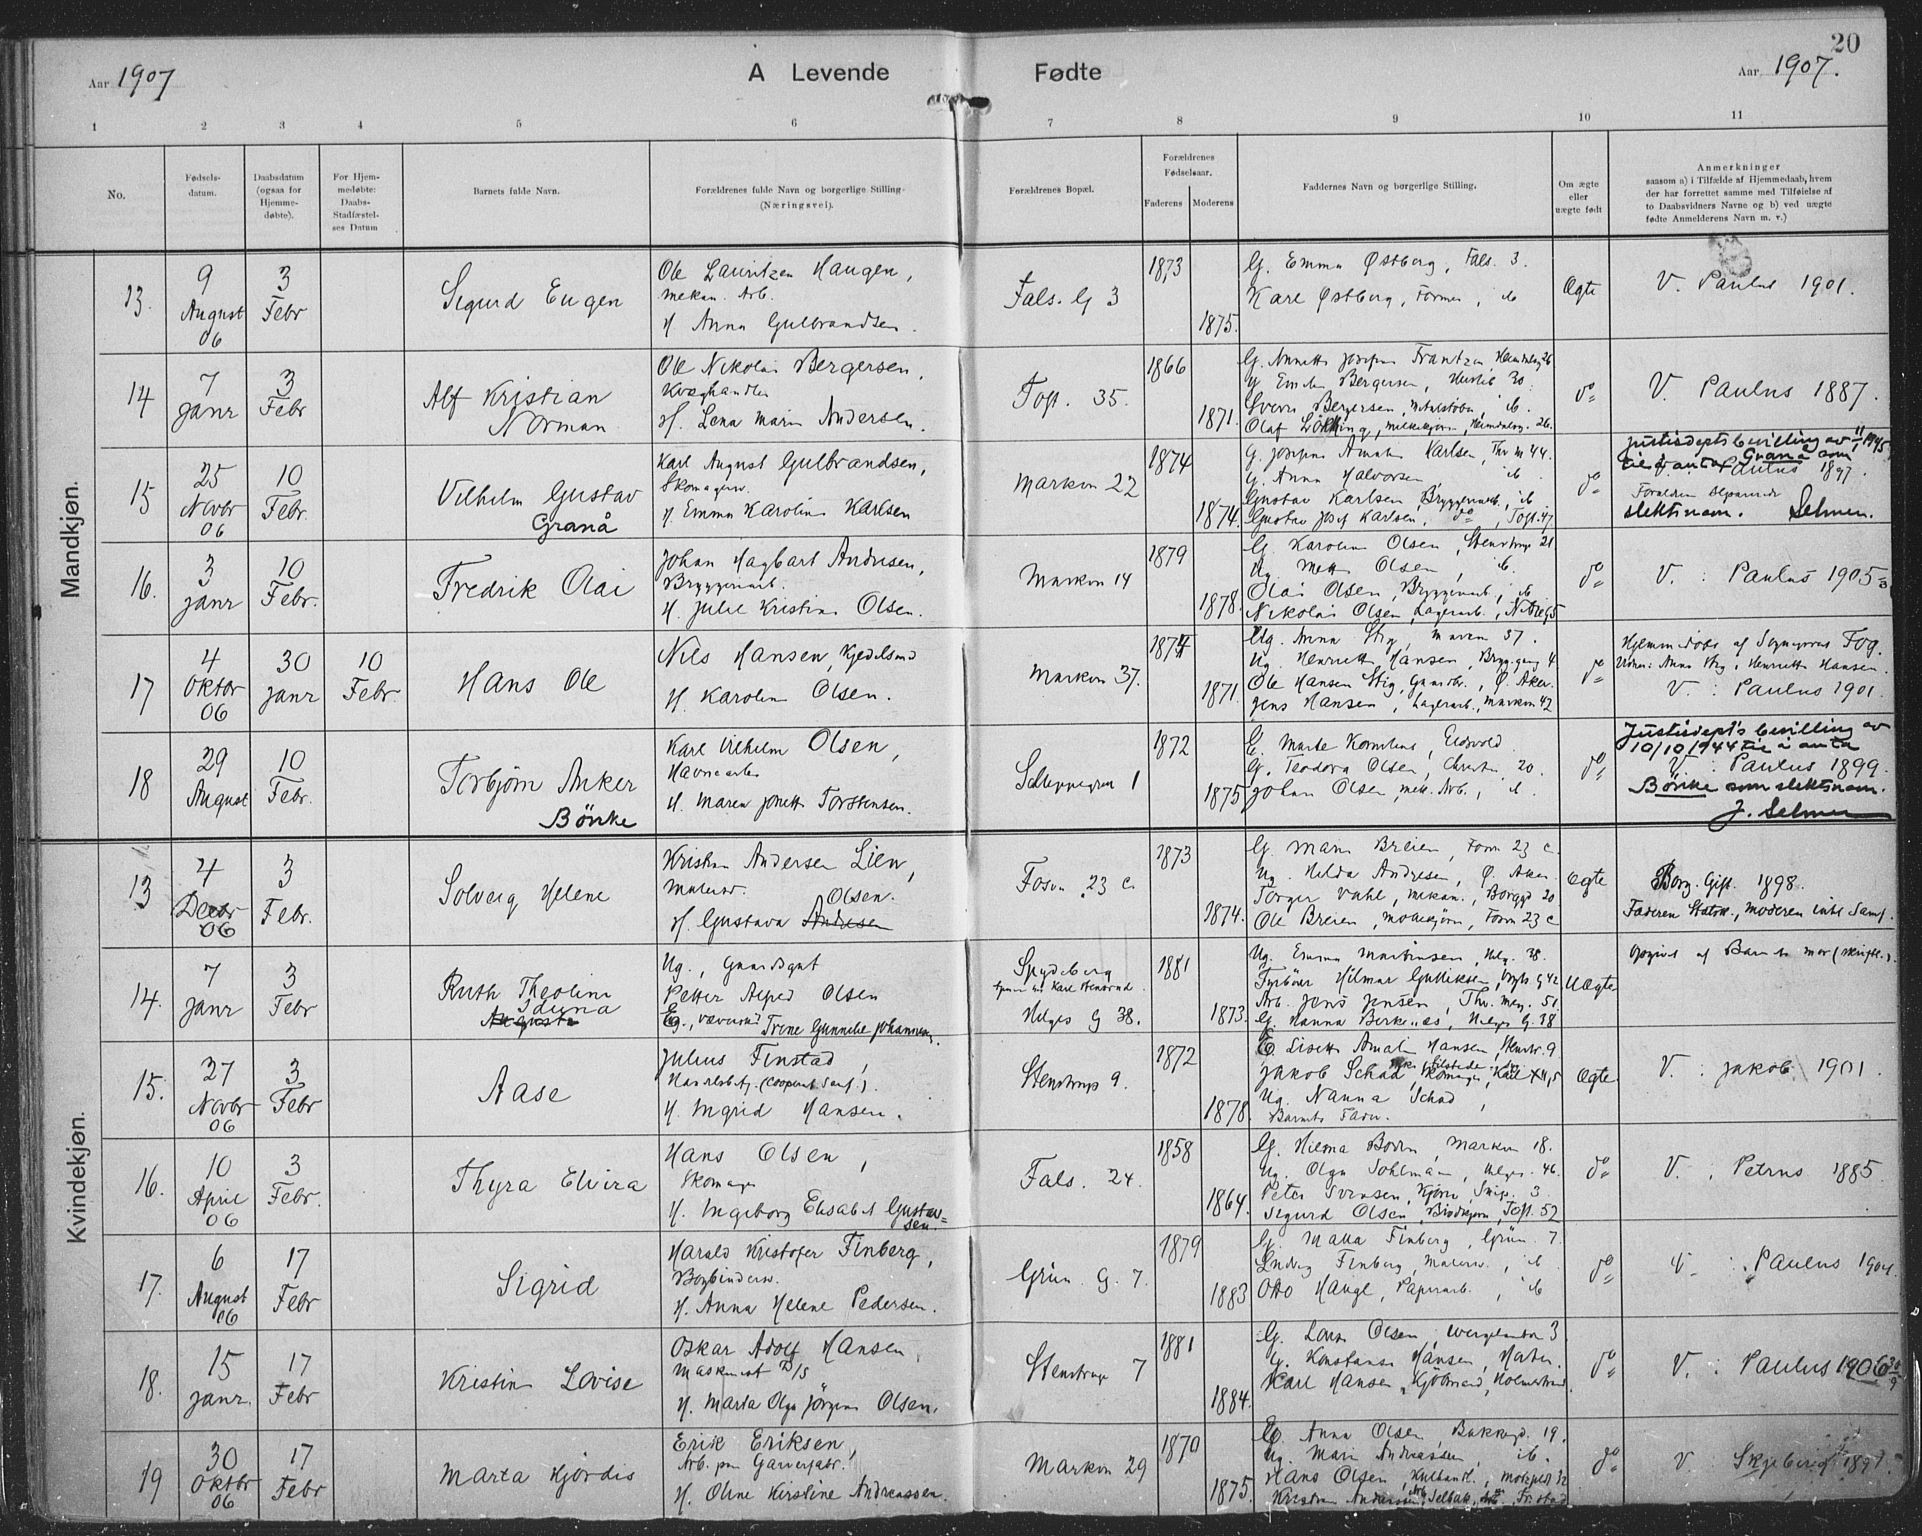 20
Aar 1907
A Levende Fødte
Aar 1907.
1 2 3 4 5 6 7 8 9 10 11
No.
Fødsels-
datum.
Daabsdatum
(ogsaa for
Hjemme-
døbte).
For Hjem-
medøbte:
Daabs-
Stadfæstel-
ses Datum
Barnets fulde Navn.
Forældrenes fulde Navn og borgerlige Stilling
(Næringsvei).
Forældrenes Bopæl.
Forældrenes
Fødselsaar.
Faderens
Moderens
Faddernes Navn og borgerlige Stilling.
Om ægte
eller
uægte født
Anmerkninger
saasom a) i Tilfælde af Hjemmedaab, hvem
der har forrettet samme med Tilføielse af
to Daabsvidners Navne og b) ved uægte
fødte Anmelderens Navn m. v.)
Mandkjøn.
13.
9
August
06
3
Febr
Sigurd Eugen
Ole Lauritzen Haugen,
mekan. Arb.
H Anna Gulbrandsen.
Fals. G 3
1873
1875.
G. Emma Østberg, Fals. 3.
Karl Østberg, Former, ib
Ægte
V. Paulus 1901.
14
7
Janr
3
Febr
Alf Kristian
Norman
Ole Nikolai Bergersen,
Kvæghandler
H. Lena Marie Andersen.
Toft. 35.
1866
1871.
G. Annette Josefine Frantzen, 26
G. Emilie Bergersen, 30.
Sverre Bergersen, ib.
Olaf Løkking, 26.
do
V. Paulus 1887.
15
25
Novbr
06
10
Febr.
Vilhelm Gustav
Granå
Karl August Gulbrandsen,
Skomagersv.
H. Emma Karoline Karlsen
Markvn 22
1874
1874.
G. Josefine Amalie Karlsen, Thv m 44.
G. Anna Halvorsen ib
Gustav Karlsen, Bryggeriarb., ib
Gustav Josef Karlsen, do, Toft. 47
do
Justisdepts bevilling av 11/1 1945
til å anta Granå som
Paulus 1897
slektsnavn. Selmer.
16.
3
Janr
10
Febr.
Fredrik Olai
Johan Hagbart Andresen,
Bryggeriarb.
H. Julie Kristine Olsen.
Markvn 14
1879
1878.
G. Karoline Olsen, Stenstrup 21
Ug. Mette Olsen, ib.
Olai Olsen, Bryggeriarb., ib
Nikolai Olsen, Lagerarb.,
do
V. : Paulus 1905
17
4
Oktbr
06
30
Janr
10
Febr.
Hans Ole
Nils Hansen, Kjedelsmed
H. Karoline Olsen.
Markvn 37.
1874
1871.
Ug. Anna Stig, Markvn 37.
Ug. Henriette Hansen, Brygg. gang 4
Ole Hansen Stig, Gaardbr., Ø. Aker.
Jens Hansen, Lagerarb., Markvn 42
do
Hjemmedøbt af Sogneprest Fog.
Vidner: Anna Stig, Henriette Hansen
V. : Paulus 1901.
18
29
August
10
Febr.
Torbjørn Anker
Börke
Karl Vilhelm Olsen,
Havnearb
H. Maren Jonette Torstensen.
Schleppegren 1
1872
1875
E. Marte Kornelius, Eidsvold.
G. Teodora Olsen, Christies 20.
Johan Olsen, mek. Arb., ib.
do
Justisdept's bevilling av
10/10 1944 til å anta
V : Paulus 1899.
Börke som slektsnavn.
J. Selmer
Kvindekjøn.
13
4
Decbr
06
3
Febr.
Solveig Helene
Kristian Andersen Lien,
Malersv.
Olsen.
H. Gustava Andersen
Fosvn 23 c.
1873
1874.
G. Marie Breien, Fosvn 23 c.
Ug. Hilda Andresen, Ø. Aker.
Torger Vahl, Mekan., Borggd 20
Ole Breien, Fosvn 23 c
Ægte
Borg. Gift. 1898.
Faderen Statsk., Moderen intet Samf.
14.
7
Janr
3
Febr
Ruth Theoline
Iduna
Augusta
Ug., Gaardsgut
Petter Alfred Olsen
E., Væverske Trine Gunnelie Johannesen.
Spydeberg
Helges G 38.
1881
1873.
Ug. Emma Martinsen, Helg. 38.
Fyrbøter Hilmar Gulliksen, G 42
Arb. Jens Jensen, Thv. Mey. 51.
G. Hanna Berkenes, Helges G. 38
Uægte
Opgivet af Barnets mor (skriftl.).
15.
27
Novbr
06
3
Febr
Aase
Julius Finstad,
(Cooperat. Samf.).
H. Ingrid Hansen.
Stenstrup 9.
1872
1878.
E. Lisette Amalie Hansen, Stenstr. 9
Jakob Schad, Skomager,
Ug. Nanna Schad,
Barnets Fader.
Ægte
V. : Jakob 1901
16.
10
April
06
3
Febr.
Thyra Elvira
Hans Olsen,
Skomager
H. Ingeborg Elisabet Gustav-
sen.
Fals. 24.
1858
1864.
G. Hilma Boden, Markvn 18.
Ug. Olga Sohlman, Helges. 46.
Peter Svensen, Snip. 3
Sigurd Olsen, Toft. 52
do
V. : Petrus 1885.
17.
6
August
06
17
Febr
Sigrid
Harald Kristofer Finberg,
Bogbindersv.
H. Anna Helene Pedersen.
Grün. G. 7.
1879
1883
G. Malla Finberg, Grün. 7.
Ludvig Finberg, Malersv., ib.
Otto Haugl, Papirarb., ib
do
V. : Paulus 1904.
18.
15
Janr.
17
Febr
Kristine Lovise
Oskar Adolf Hansen,
Maskinist D/S
H. Marta Olga Jörgine Olsen.
Stenstrup 7
1881
1884.
G. Lovise Olsen, Wergelandsv 3.
G. Konstanse Hansen,
Karl Hansen, Kjøbmand, Holmestrand.
do
V. : Paulus 1906 30/9
19
30
Oktbr
06
17
Febr
Marta Hjördis
Erik Eriksen,
Arb. paa Garverfabr.
H. Oline Kirstine Andreassen.
Markvn 29
1870
1875.
E. Anna Olsen Bakkegd. 19.
Ug. Marie Andreassen, ib.
Hans Olsen, Kulhandl.,
Kristian Andersen, Selbak, Fr.stad
do
V. Skjeberg 1897.